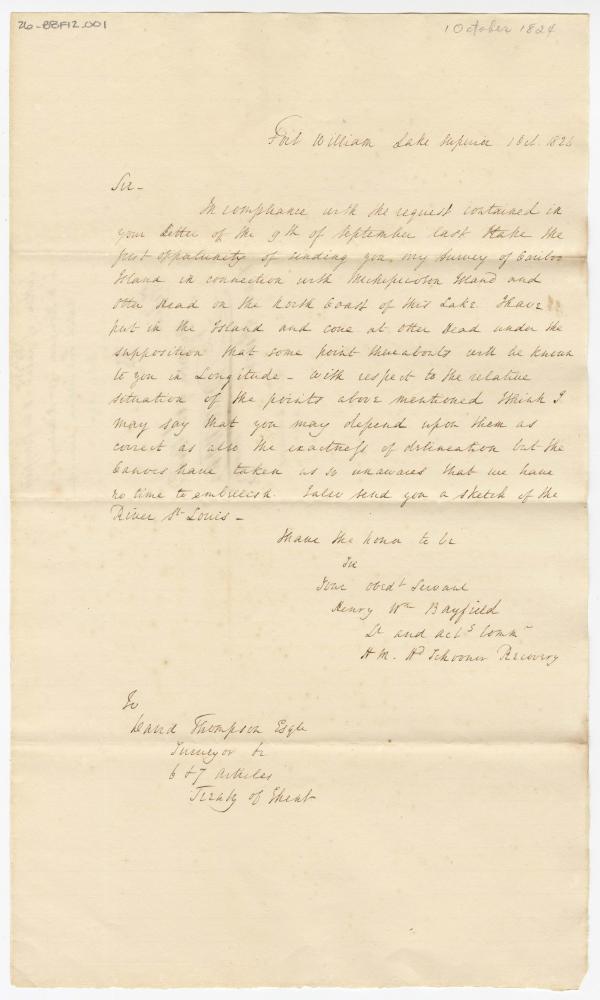 26-BBF12.001
1 October 1824
Fort William Lake Superior 1 Oct. 1824
Sir –
In compliance with the request contained in
your Letter of the 9th of September last I take the
first oppatunity of sending you my Survey of Caribou
Island in connection with Michipicoton Island and
Otter Head on the North Coast of this Lake I have
put in the Island and cove at Otter Head under the
supposition that some point thereabouts will be known
to you in Longitude – With respect to the relative
situation of the points above mentioned I think I
may say that you may depend upon them as
correct as also the exactness of delineation but the
Canoes have taken us so unawares that we have
no time to embellish. I also send you a sketch of the
River St Louis –
I have the honor to be
Sir
Your obedt Servant
Henry Wm Bayfield
Lt and actg Comm
H M. Hd Schooner Recovery
To
David Thompson Esqre
Surveyor &c
6 & 7 Articles
Treaty of Ghent